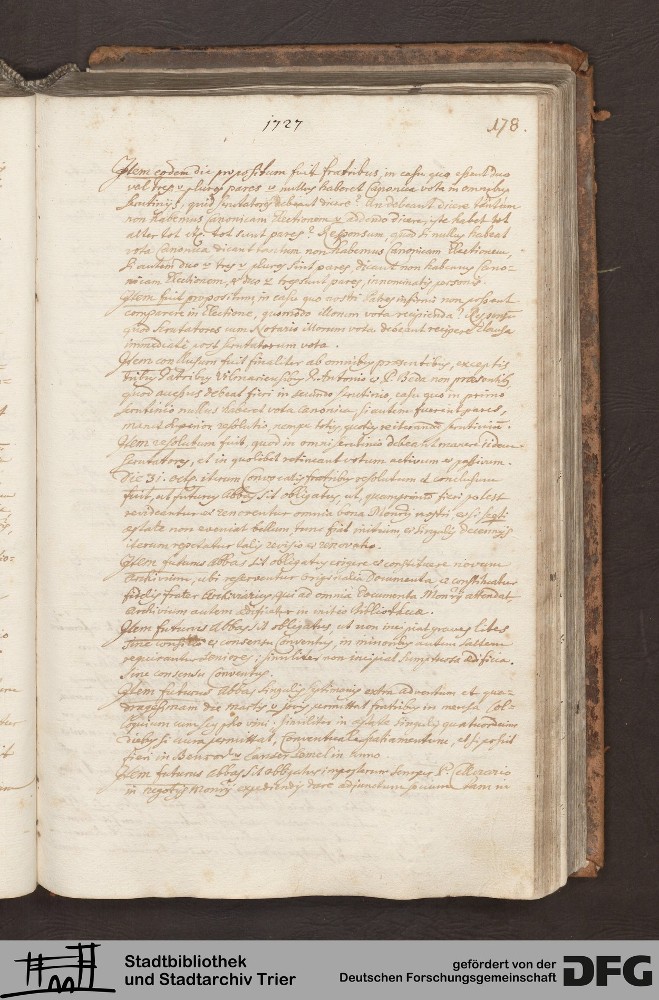 1727
178.
Item eodem die propositum fuit fratribus, in casu quo essent duo
vel tres v plures pares v nullus haberet Canonica vota in omnibus
scrutinijs, quid scrutatores debeant dicere? An debeant dicere tantum
non habemus Canonicam Electionem v addendo dicere, iste habet tot
alter tot etc. tot sunt pares? Responsum, quod si nullus habeat
vota Canonica dicant tantum non habemus Canonicam Electionem,
si autem duo v tres v plures sint pares, dicant non habemus Cano-
nicam Electionem, et duo v tres sunt pares, innominatis personis.
Item fuit propositum, in casu quo nostri Patres infirmi non possent
comparere in Electione, quomodo illorum vota recipienda? Responsum
quod Scrutatores cum Notario illorum vota debeant recipere clausa
immediate post scrutatorum vota.
Item conclusum fuit finaliter ab omnibus praesentibus, exceptis
tribus Patribus Vilmariensibus P. Antonio et P. Beda non praesentibus
quod accessus debeat fieri in secundo scrutinio, casu quo in primo
scrutinio nullus haberet vota Canonica, si autem fuerint pares,
maneat superior resolutio, nempe toties quoties reiterandum scrutinium.
Item resolutum fuit, quod in omni scrutinio debeant manere ijdem
scrutatores, et in quolibet retineant votum activum et passivum.
Die 31. octo. iterum Convocatis fratribus resolutum et conclusum
fuit, ut futurus Abbas sit obligatus, ut, quamprimum fieri potest
renoventur omnia bona Monrij nostri, et si
aestate non eveniat bellum, tunc fiat initium, et singulis decennijs
iterum repetatur talis revisio et renovatio.
Item futurus Abbas sit obligatus erigere et constituere novum
Archivium, ubi reserventur originalia Documenta, et constituatur
fidelis frater Archivarius, qui ad omnia Documenta Monrij attendat,
Archivium autem adificetur in initio Bibliothecae.
Item futurus Abbas sit obligatus, ut non incipiat graves lites
sine consilio et consensu Conventus, in minoribus autem saltem
requirantur seniores; similiter non incipiat sumptuosa aedificia
sine consensu Conventus.
Item futurus Abbas singulis septimanis extra adventum et qua-
dragesimam die martis v jovis permittat fratribus in mensa Col-
loquium cum scypho vini. similiter in aestate singulis quatuordecim
diebus si aura permittat, Conventuale spatiamentum, et si possit
fieri in v semel in Anno.
Item futurus Abbas sit obligatus imposterum semper P. Cellerario
in negotijs Monrij expediendis dare adjunctum socium tam in
Stadtbibliothek
und Stadtarchiv Trier
gefördert von der
Deutschen Forschungsgemeinschaft
DFG